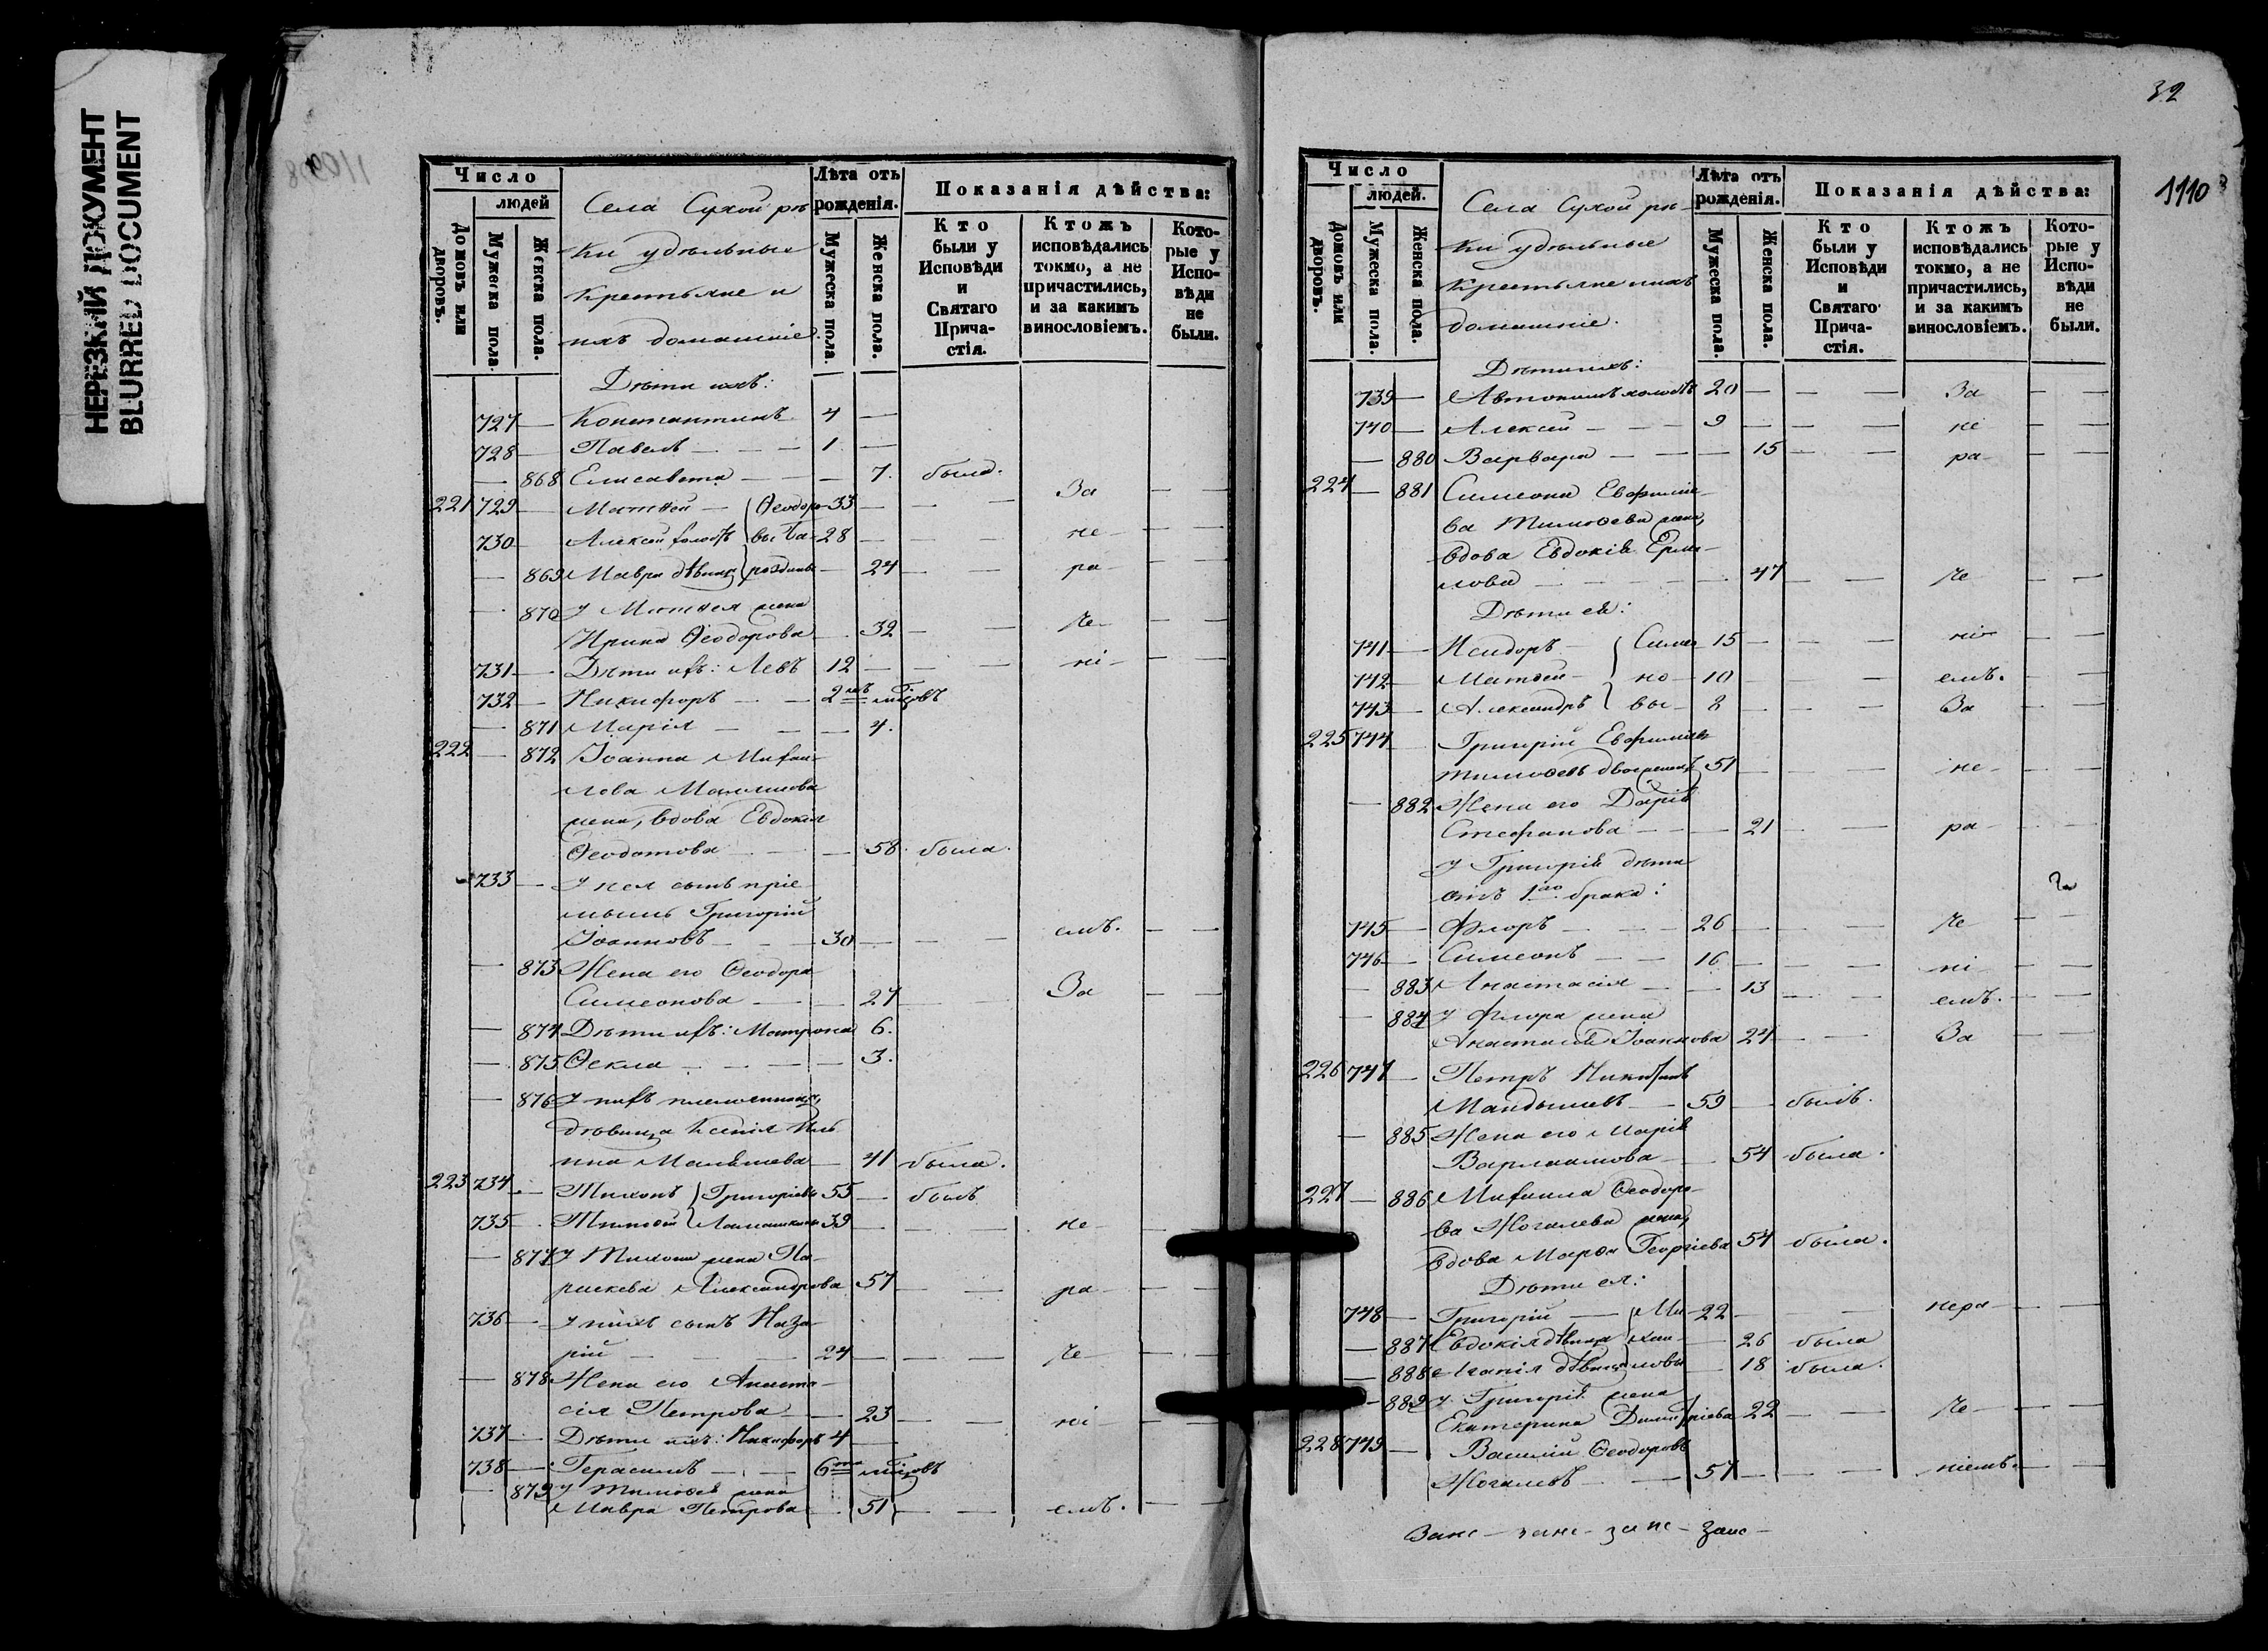 НЕРЕЗКИЙ ДОКУМЕНТ
BLURRED DOCUMENT
Число
людей
Домовъ или дворовъ.
Мужеска пола.
Женска пола.
Села Сухой рѣ-
ки удѣльные
крестьяне и
ихъ домашніе.
Лѣта отъ рожденія.
Мужеска пола.
Женска пола.
Показанія дѣйства:
Кто были у Исповѣди и Святаго Прича-стія.
Ктожъ исповѣдались токмо, а не причастились, и за какимъ винословіемъ.
Кото-рые у Испо-вѣди не были.
Дѣти ихъ:
727 — Константинъ 4 —
728 — Павелъ — — — 1 —
— 868 Елисавета — — — 7. была.
221 729 — Матѳей — Ѳеодоро- 33 — — — За — —
730 — Алексей холостъ вы 28 — — — не — —
— 869 Мавра дѣвица — 24 — — ра — —
— 870 У Матѳея жена
Ирина Ѳеодорова — 32 — — че — —
731 — Дѣти ихъ: Левъ 12 — — — ні — —
732 — Никифоръ — — 2хъ мѣсяцовъ
— 871 Марія — — — 4.
222 — 872 Іоанна Михаи-
лова
жена, вдова Евдокія
Ѳеодотова — — — 58 была.
733 — У нея сынъ пріе-
мышъ Григорій
Іоанновъ — — 30 — — — емъ. — —
— 873 Жена его Ѳеодора
Симеонова — — 27 — — За — —
— 874 Дѣти ихъ: Матрона 6.
— 875 Ѳекла — — — — 3.
— 876 У нихъ племянница,
дѣвица Ксенія Иль-
ина — 41 была.
223 734 — Тихонъ Григорьевы 55 — былъ
735 — Тимоѳей Ламашкины 39 — — — не — —
— 877 У Тихона жена Па-
раскева Александрова 57 — — ра — —
736 — У нихъ сынъ Наза-
рій — — — 24 — — — че — —
— 878 Жена его Анаста-
сія Петрова — — 23 — — ні — —
737 — Дѣти ихъ: Никифоръ 4 —
738 — Герасимъ — — 6ти мѣсяцовъ
— 879 У Тимоѳея жена
Мавра Петрова — 51 — — емъ. — —
32
1110
Число
людей.
Домовъ или дворовъ.
Мужеска пола.
Женска пола.
Села Сухой рѣ-
ки удѣльные
крестьяне и ихъ
домашніе.
Лѣта отъ рожденія.
Мужеска пола.
Женска пола.
Показанія дѣйства:
Кто были у Исповѣди и Святаго Прича-стія.
Ктожъ исповѣдались токмо, а не причастились, и за какимъ винословіемъ.
Кото-рые у Испо-вѣди не были.
Дѣти ихъ:
739 — Автономъ холостъ 20 — — — За — —
740 — Алексей — — — 9 — — — не — —
— 880 Варвара — — — 15 — — ра — —
224 — 881 Симеона Евфиміе-
ва Тимоѳева жена,
вдова Евдокія Ерми-
лова — — — — 47 — — че — —
Дѣти ея:
741 — Исидоръ — Симе- 15 — — — ні — —
742 — Матѳей — но- 10 — — — емъ. — —
743 — Александръ вы — 8 — — — За — —
225 744 — Григорій Евфиміевъ
Тимоѳеевъ двоеженецъ 51 — — — не — —
— 882 Жена его Дарія
Стефанова — — — 21 — — ра — —
У Григорія дѣти
отъ 1го брака:
745 — Флоръ — — — 26 — — — че — —
746 — Симеонъ — — 16 — — — ні — —
— 883 Анастасія — — — 13 — — емъ. — —
— 884 У Флора жена
Анастасія Іоаннова 24 — — За — —
226 747 — Петръ
Мандышевъ — 59 — былъ.
— 885 Жена его Марія
Варлаамова — 54 была.
227 — 886 Михаила Ѳеодоро-
ва Жогалева жена,
вдова Марѳа Георгіева 54 была.
Дѣти ея:
748 — Григорій — Ми- 22 — — — нера — —
— 887 Евдокія дѣвица хаи- — 26 была
— 888 дѣвица ловы — 18 была.
— 889 У Григорія жена
Екатерина Димитріева 22 — — че — —
228 749 — Василій Ѳеодоровъ
Жогалевъ — — 57 — — — ніемъ. — —